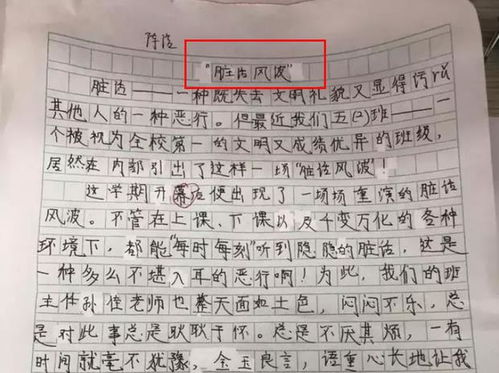 陈洁
"脏话风波"
脏话——一种既失去文明礼貌又显得污rǔ
其他人的一种恶行。但最近我们五(二)班——一
个被视为全校第一的文明又成绩优异的班级,
居然在内部引出了这样一场"脏话风波!
这学期开幕后便出现了一场场重演的脏话
风波。不管在上课、下课以及千变万化的各种
环境下,都能"每时每刻"听到隐隐的脏话,这是
一种多么不堪入耳的恶行啊!为此,我们的班
主任孙佳老师也整天面如土色,闷闷不乐,总
是对此事总是耿耿于怀。总是不厌其烦,一有
时间就毫不犹豫,金玉良言,语重心长地让我